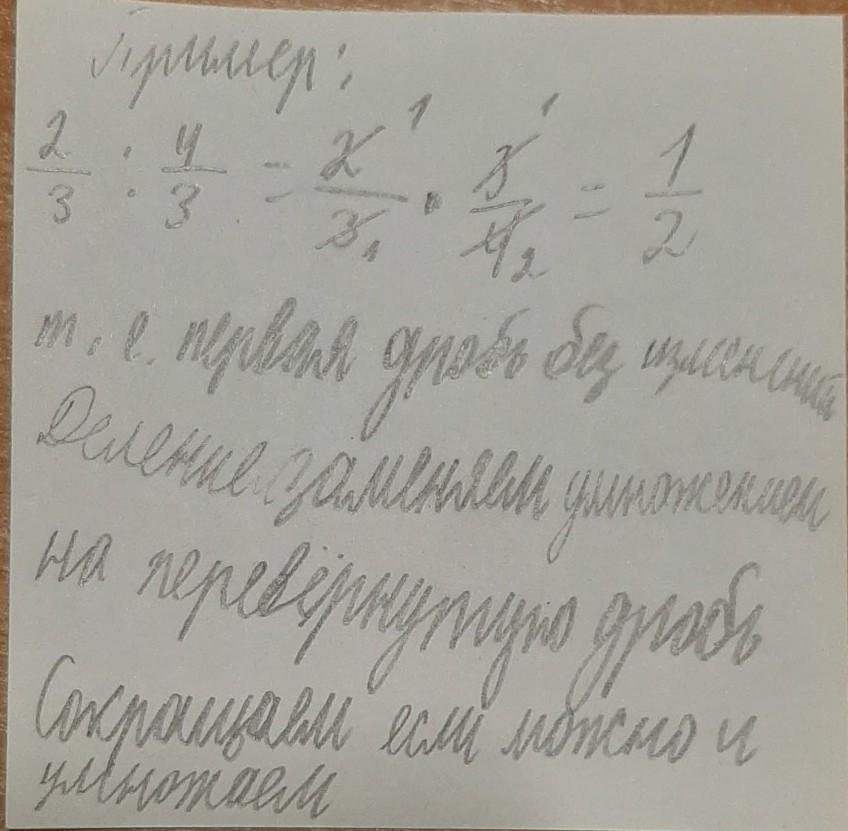 Пример:
2/3 : 4/3 = 2̸¹/3̸₁ · 3̸¹/4̸₂ = 1/2
т. е. первая дробь без изменений
Деление заменяем умножением
на перевёрнутую дробь
Сокращаем если можно и
умножаем